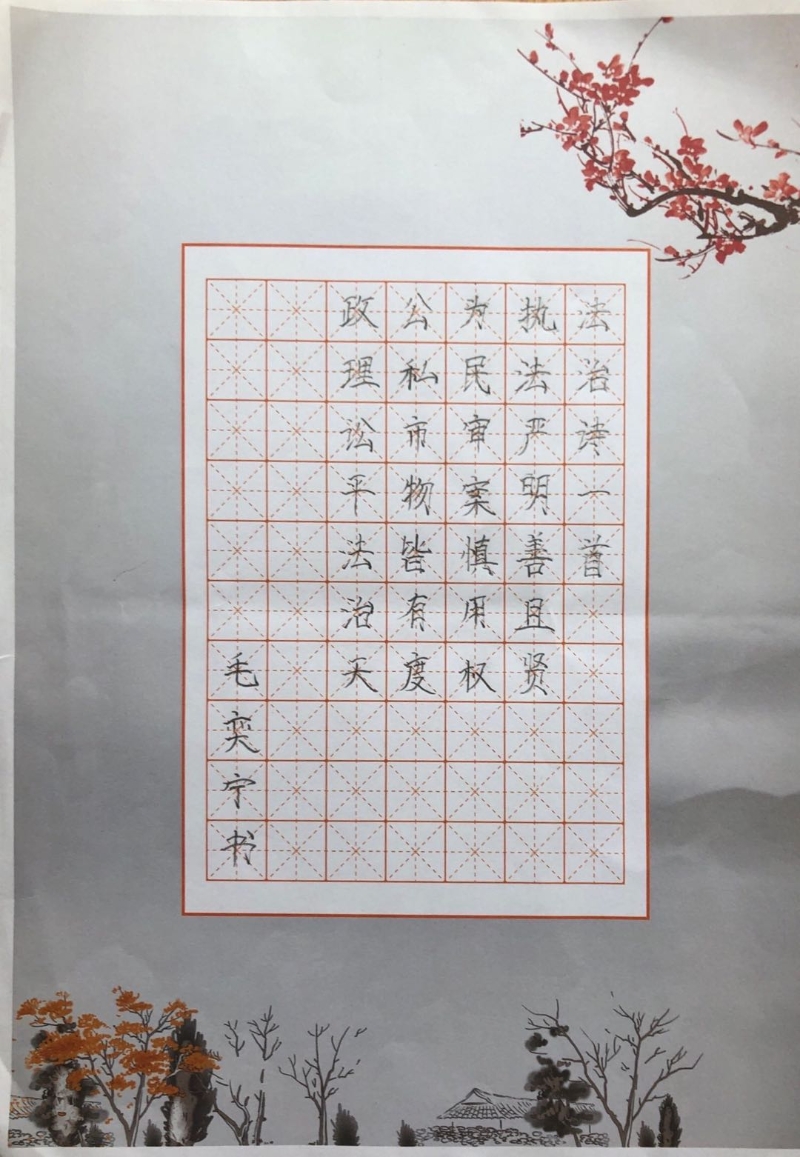 法治诗一首
执法严明善且贤
为民审案慎用权
公私市物皆有度
政理讼平法治天
毛奕宁书